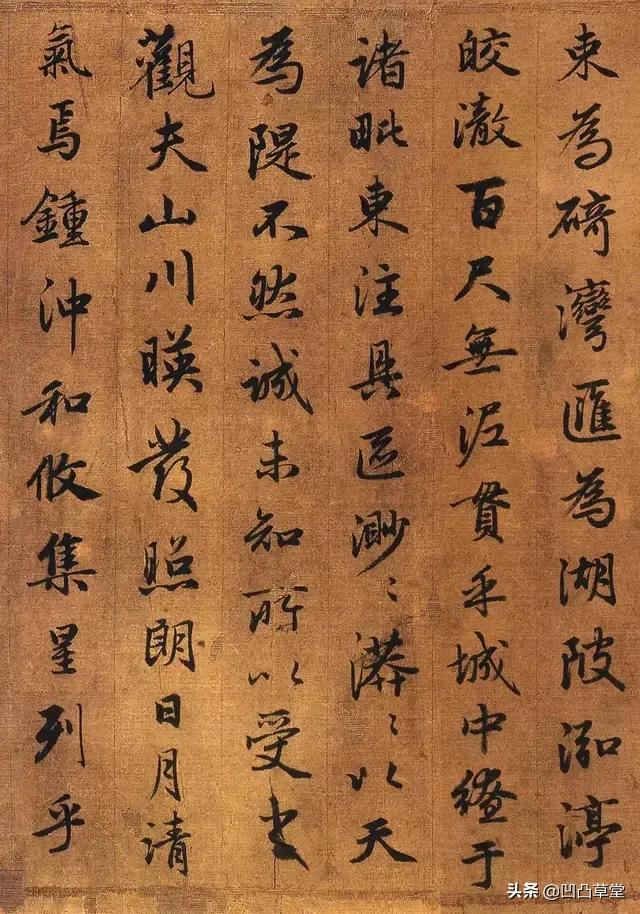 束為碕灣匯為湖陂泓渟
皎澈百尺無泥貫乎城中繚于
諸毗東注具區渺〻漭〻以天
為隄不然誠未知所以受之
觀夫山川暎發照朗日月清
氣焉鍾沖和攸集星列乎
头条 @凹凸草堂